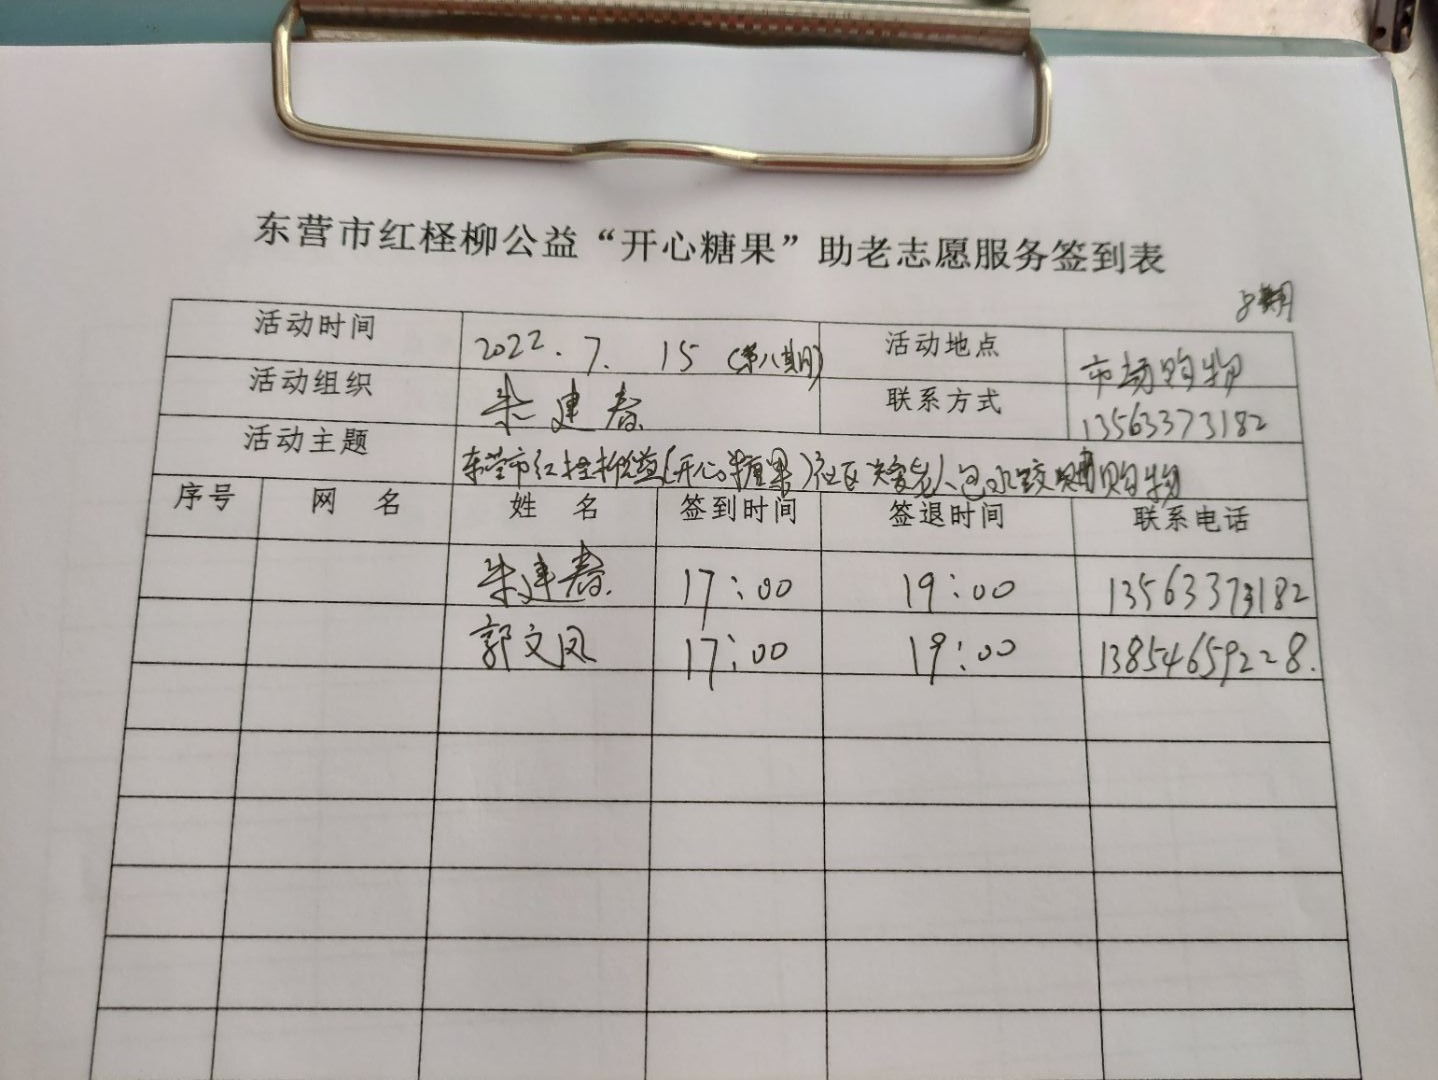 东营市红柽柳公益“开心糖果”助老志愿服务签到表
8期
活动时间 2022.7.15（第八期） 活动地点 市场购物
活动组织 朱建春 联系方式 13563373182
活动主题 东营市红柽柳公益（开心糖果）社区关爱老人包水饺购物
序号 网名 姓名 签到时间 签退时间 联系电话
朱建春 17:00 19:00 13563373182
郭文凤 17:00 19:00 13854659228.